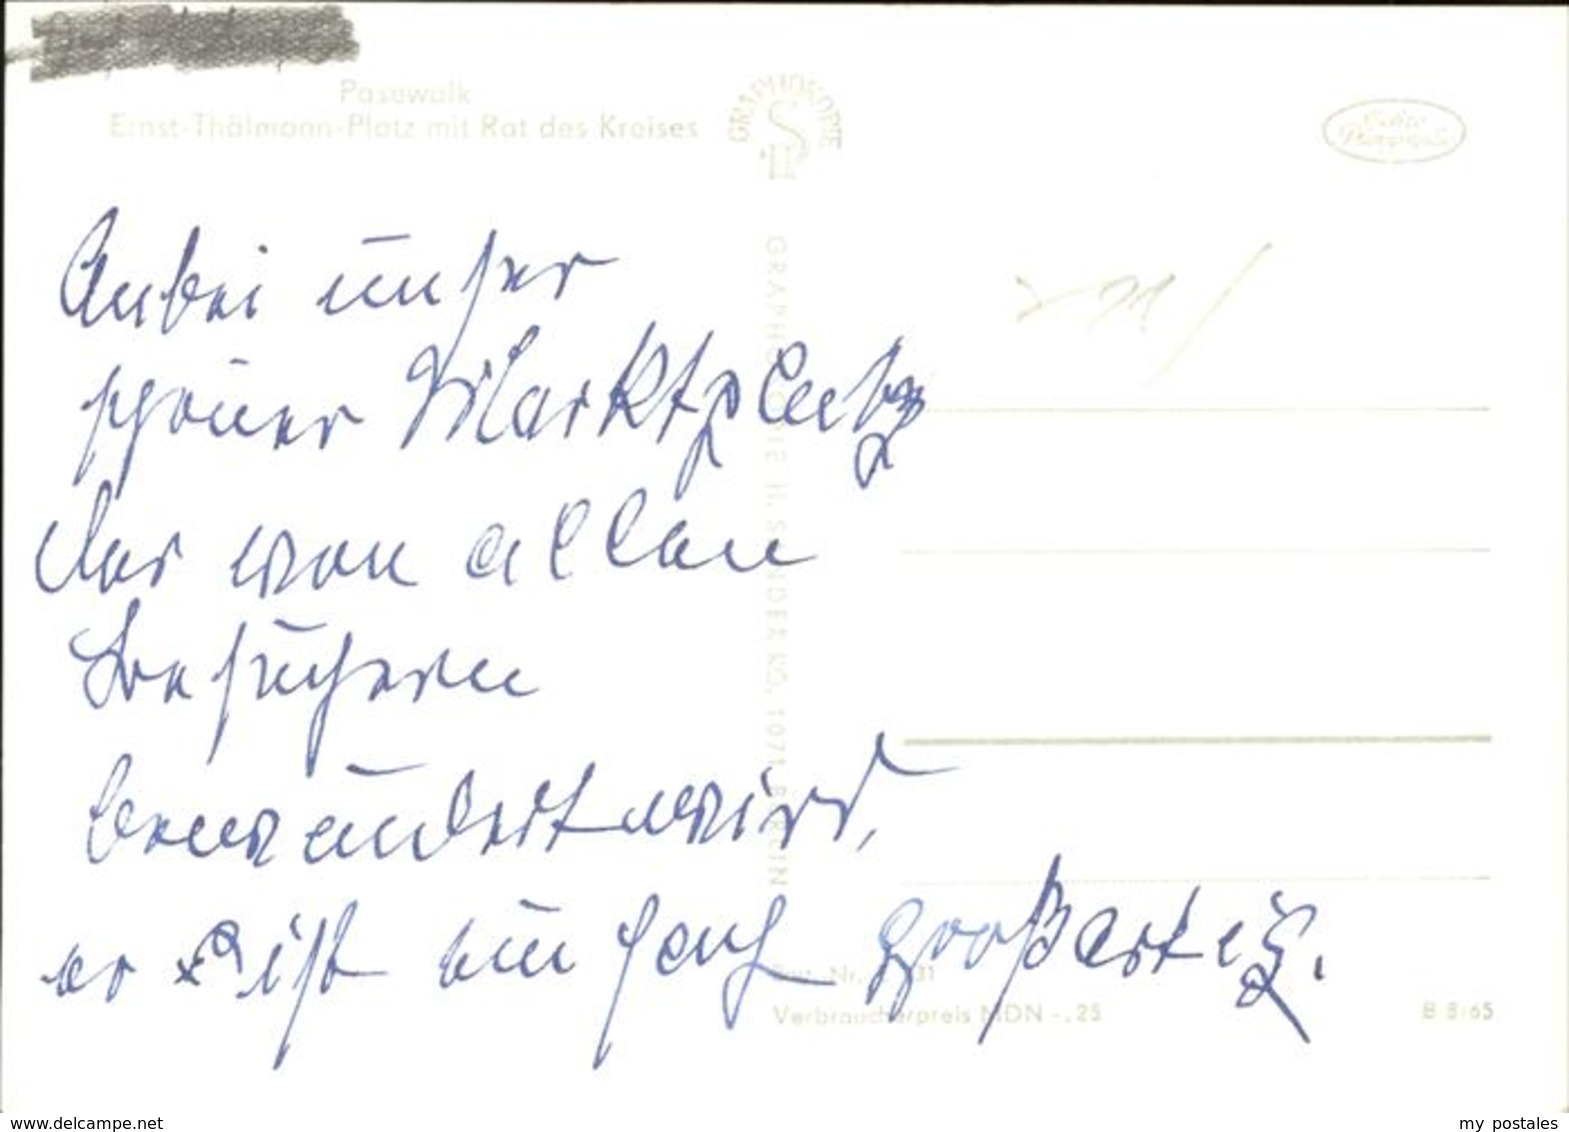 Pasewalk
Ernst-Thälmann-Platz mit Rat des Kreises
GRAPHOKOPIE
Echte
Photographie
GRAPHOKOPIE H. SANDER KG, 1071 BERLIN
Anbei unser
schöner Marktplatz
der von allen
Besuchern
bewundert wird,
er ist einfach großartig.
Best.-Nr. 31
Verbraucherpreis MDN -.25
B 8/65
delcampe.net
my postales